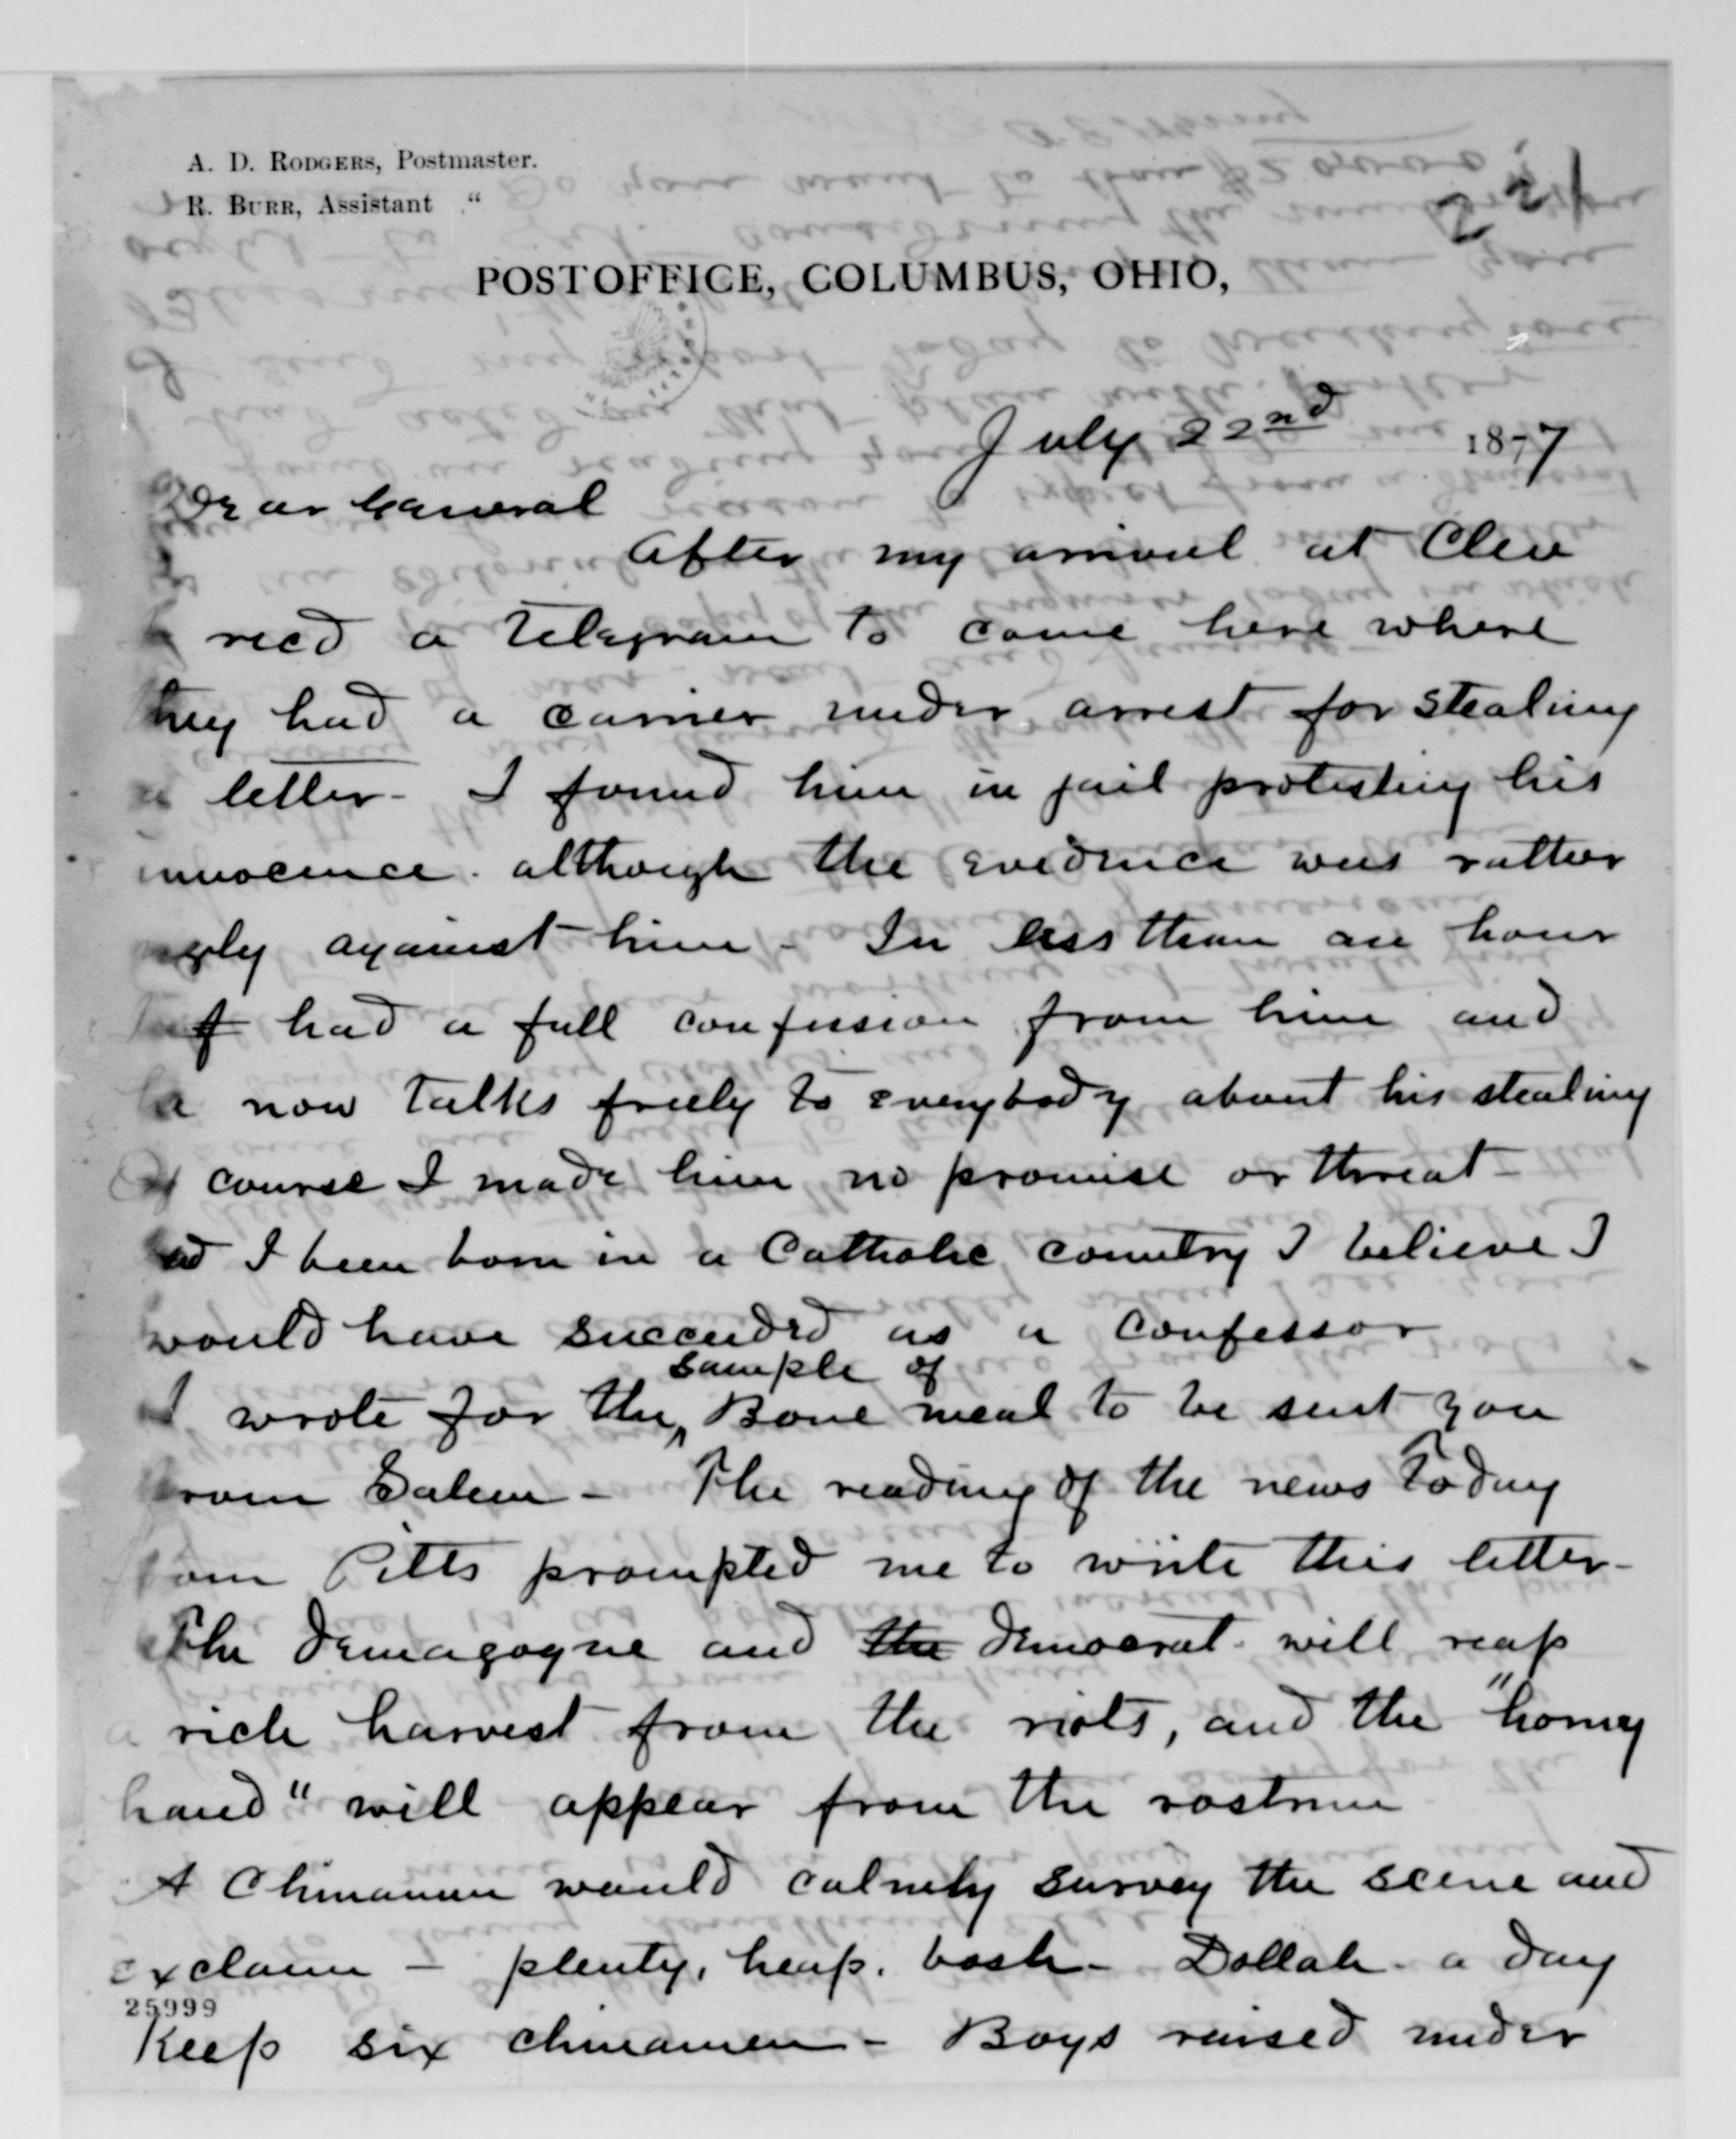 A. D. RODGERS, Postmaster.
R. BURR, Assistant "
POSTOFFICE, COLUMBUS, OHIO,
July 22nd 1877
Dear General
After my arrival at Cleve
I recd a telegram to come here where
they had a carrier under arrest for stealing
a letter - I found him in jail protesting his
innocence. although the evidence was rather
ugly against him - In less than an hour
I had a full confession from him and
he now talks freely to everybody about his stealing
Of course I made him no promise or threat -
had I been born in a Catholic country I believe I
would have succeeded as a Confessor
sample of
I wrote for the ‸ Bone meal to be sent you
from Salem - The reading of the news today
from Pitts prompted me to write this letter -
The demagogue and the democrat will reap
a rich harvest from the riots, and the "horny
hand" will appear from the rostrum
A Chinaman would calmly survey the scene and
exclaim - plenty, heap, bosh - Dollah a day
25999
Keep six chinamen - Boys raised under